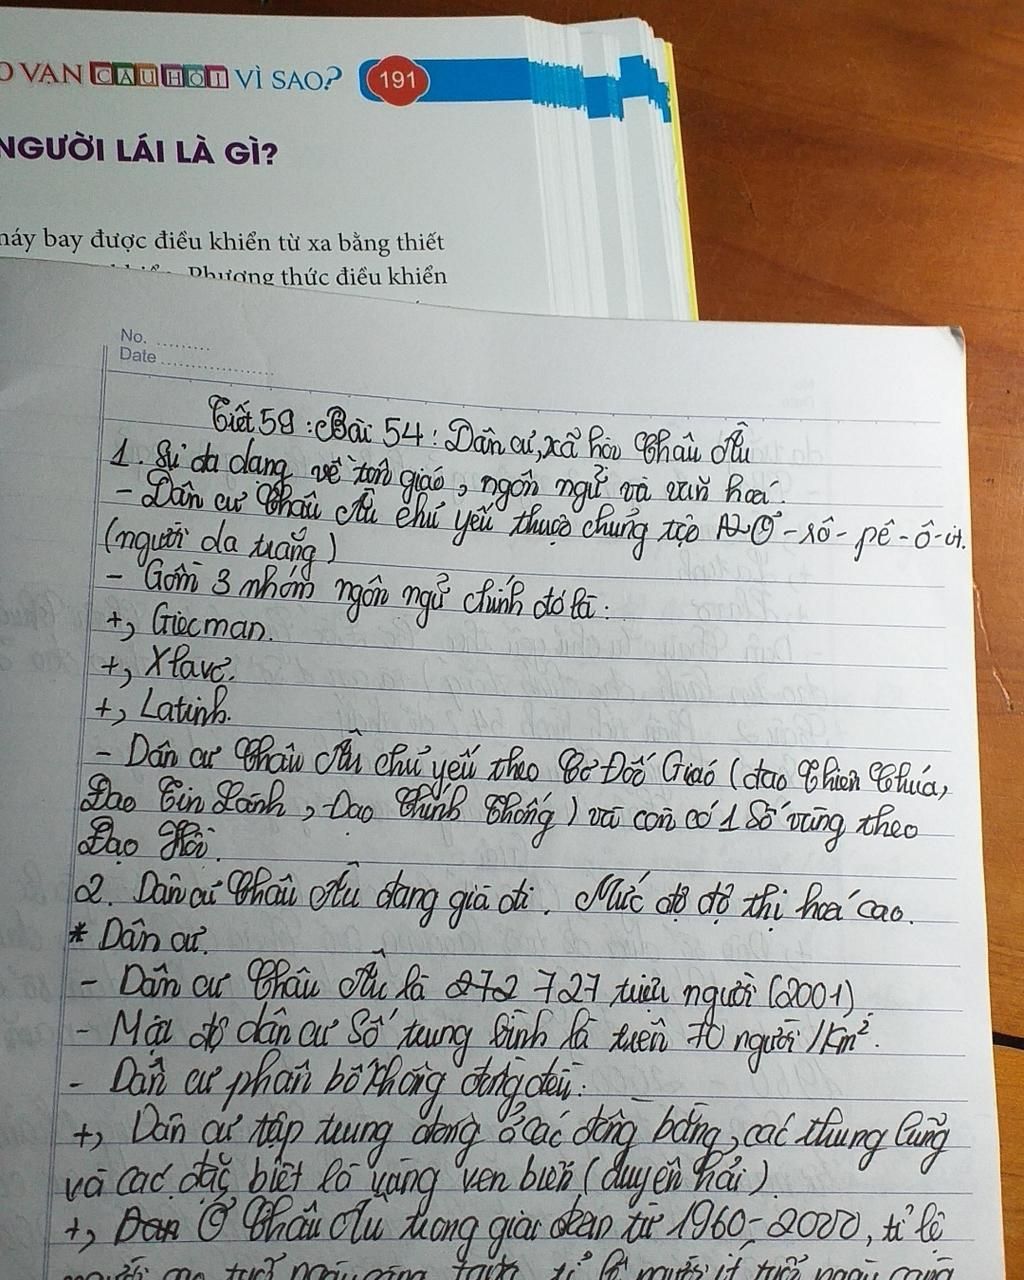 O VẠN CÂU HỎI VÌ SAO? 191
NGƯỜI LÁI LÀ GÌ?
máy bay được điều khiển từ xa bằng thiết
Phương thức điều khiển
No. .........
Date ...................
Tiết 58 : Bài 54 : Dân cư, xã hội Châu Âu
1. Sự đa dạng về tôn giáo, ngôn ngữ và văn hoá.
- Dân cư Châu Âu chủ yếu thuộc chủng tộc Ơ-rô-pê-ô-ít.
(người da trắng)
- Gồm 3 nhóm ngôn ngữ chính đó là :
+, Giecman.
+, Xlavơ.
+, Latinh.
- Dân cư Châu Âu chủ yếu theo Cơ Đốc Giáo (đạo Thiên Chúa,
Đạo Tin Lành, Đạo Chính Thống) và còn có 1 số vùng theo
Đạo Hồi.
2. Dân cư Châu Âu đang già đi. Mức độ đô thị hoá cao.
* Dân cư.
- Dân cư Châu Âu là 272 727 triệu người (2001).
- Mật độ dân cư Số trung bình là trên 70 người/Km².
- Dân cư phân bố không đồng đều :
+, Dân cư tập trung đông ở các đồng bằng, các thung lũng
và các đặc biệt là vùng ven biển (duyên hải).
+, Dan Ở Châu Âu trong giai đoạn từ 1960-2000, tỉ lệ